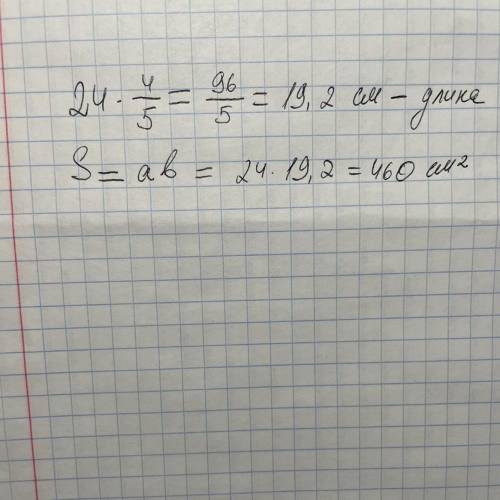 24 · 4/5 = 96/5 = 19,2 см – длина
S = ab = 24 · 19,2 = 460 см²